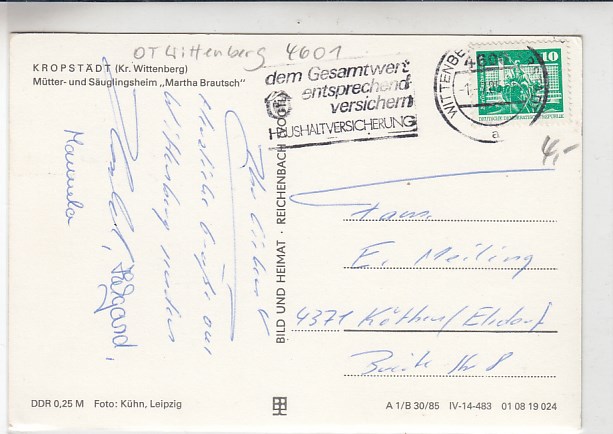 OT Wittenberg 4601
KROPSTÄDT (Kr. Wittenberg)
Mütter- und Säuglingsheim „Martha Brautsch"
dem Gesamtwert
entsprechend
versichern
HAUSHALTVERSICHERUNG
WITTENBERG
4600
a
10
DEUTSCHE DEMOKRATISCHE REPUBLIK
4,-
Ihr Lieben
Herzliche Grüße aus
Wittenberg senden
Helgard,
Manuela
BILD UND HEIMAT · REICHENBACH (VOGTL)
Fam.
E. Meiling
4371 Köthen/Elsdorf
Breite Str 8
DDR 0,25 M Foto: Kühn, Leipzig
A 1/B 30/85 IV-14-483 01 08 19 024